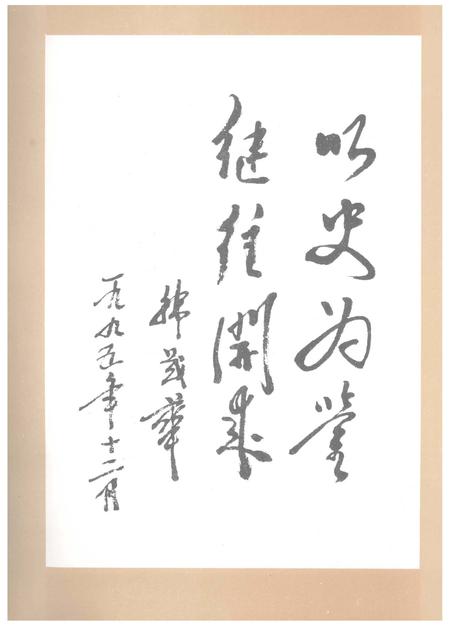 以史为鉴
继往開来
韩茂华
一九九五年十二月